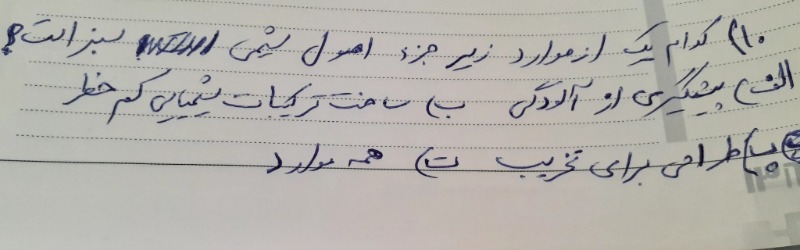 ۱۰) کدام یک از موارد زیر جزء اصول شیمی سبز است؟
الف) پیشگیری از آلودگی ب) ساخت ترکیبات شیمیایی کم خطر
پ) طراحی برای تخریب ت) همه موارد